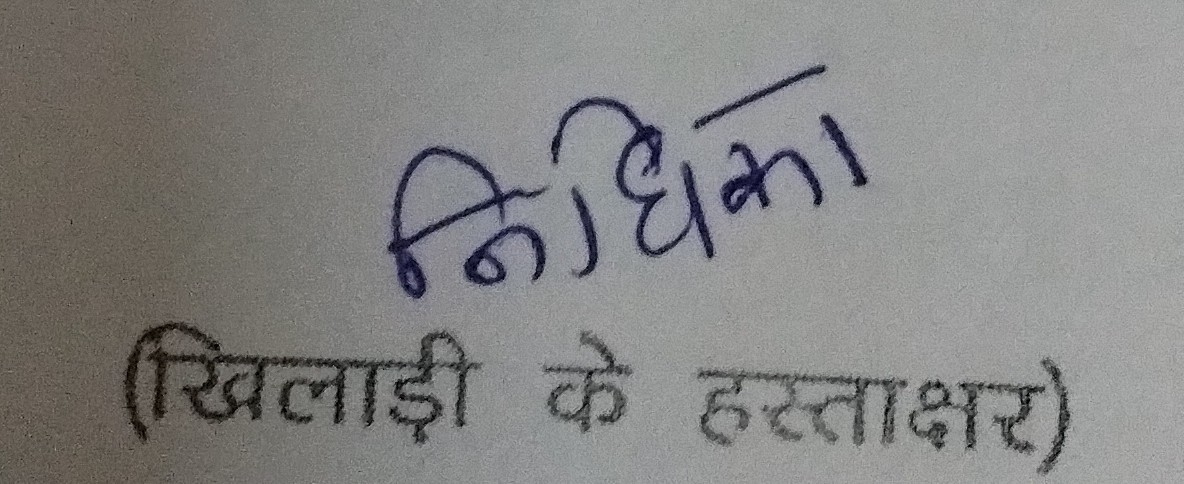 निधिका
(खिलाड़ी के हस्ताक्षर)